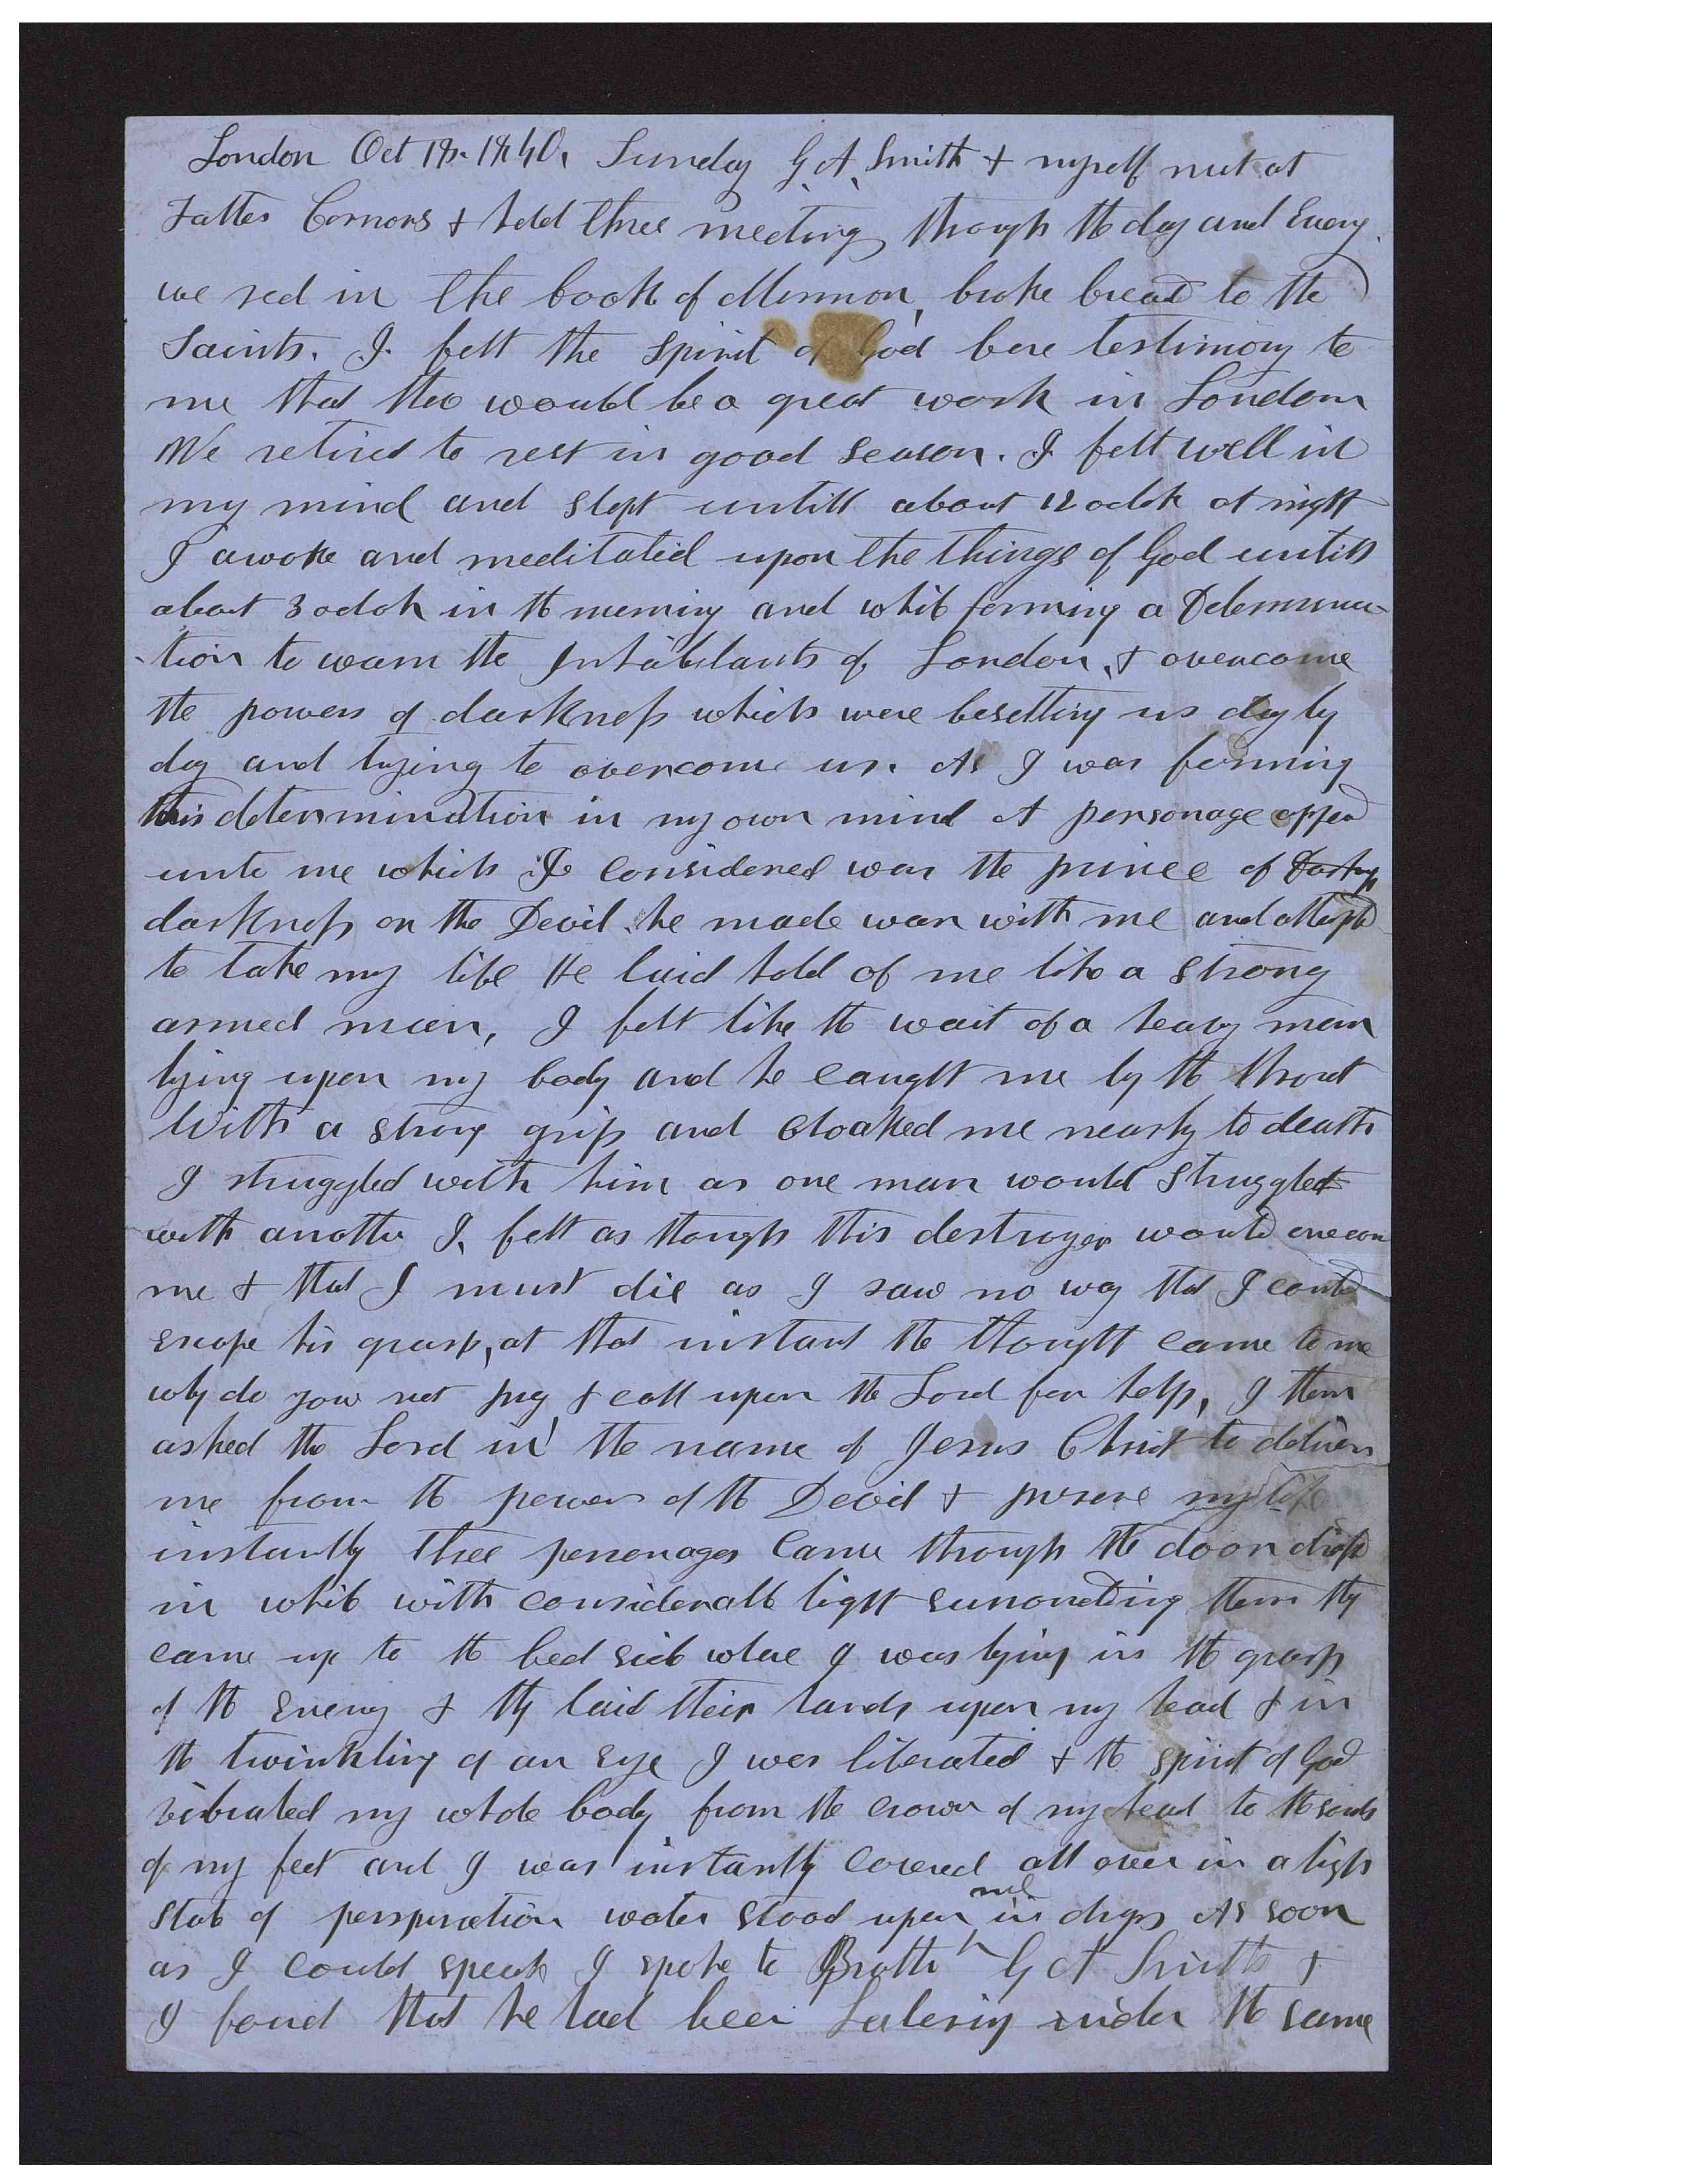 London Oct 18. 1840. Sunday G. A. Smith & myself met at
Father Corners & held three meeting through the day and Eveng.
we red in the book of Mormon, broke bread to the
Saints. I felt the spirit of God bere testimony to
me that ther would be a great work in London
We retired to rest in good season. I felt well in
my mind and slept untill about 12 oclok at night
I awoke and meditated upon the things of God untill
about 3 oclok in the morning and while forming a Determina-
-tion to warn the Inhabitants of London, & overcome
the powers of darkness which were besetting us day by
day and trying to overcome us. As I was forming
this determination in my own mind A personage appeared
unto me which I considered was the prince of
darkness or the Devil. he made war with me and attempted
to take my life He laid hold of me like a strong
armed man, I felt like the wait of a heavy man
lying upon my body and he caught me by the throat
With a strong grip and choaked me nearly to death
I struggled with him as one man would struggled
with another I felt as though this destroyer would overcom
me & that I must die as I saw no way that I could
escape his grasp, at that instant the thought came to me
why do you not pray & call upon the Lord for help, I then
asked the Lord in the name of Jesus Christ to deliver
me from the power of the Devil & preserve my life
instantly three personages came through the door dressed
in white with considerable light surrounding them they
came up to the bed side where I was lying in the grasp
of the Enemy & they laid their hands upon my head & in
the twinkling of an Eye I was liberated & the spirit of God
vibrated my whole body from the crown of my head to the souls
of my feet and I was instantly covered all over in a high
state of perspiration water stood upon me in drops As soon
as I could speak I spoke to Brother G A Smith &
I found that he had been Labering under the same